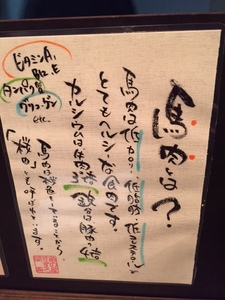 馬肉とは?
馬肉は低カロリー・低脂肪・低コレステロールと
とてもヘルシーな食肉です。
カルシウムは牛肉の3倍 鉄分は豚肉の4倍
馬肉は桜色をすることから
「桜肉」とも呼ばれています。
ビタミンA、
B12、E
タンパク質
グリコーゲン
etc.